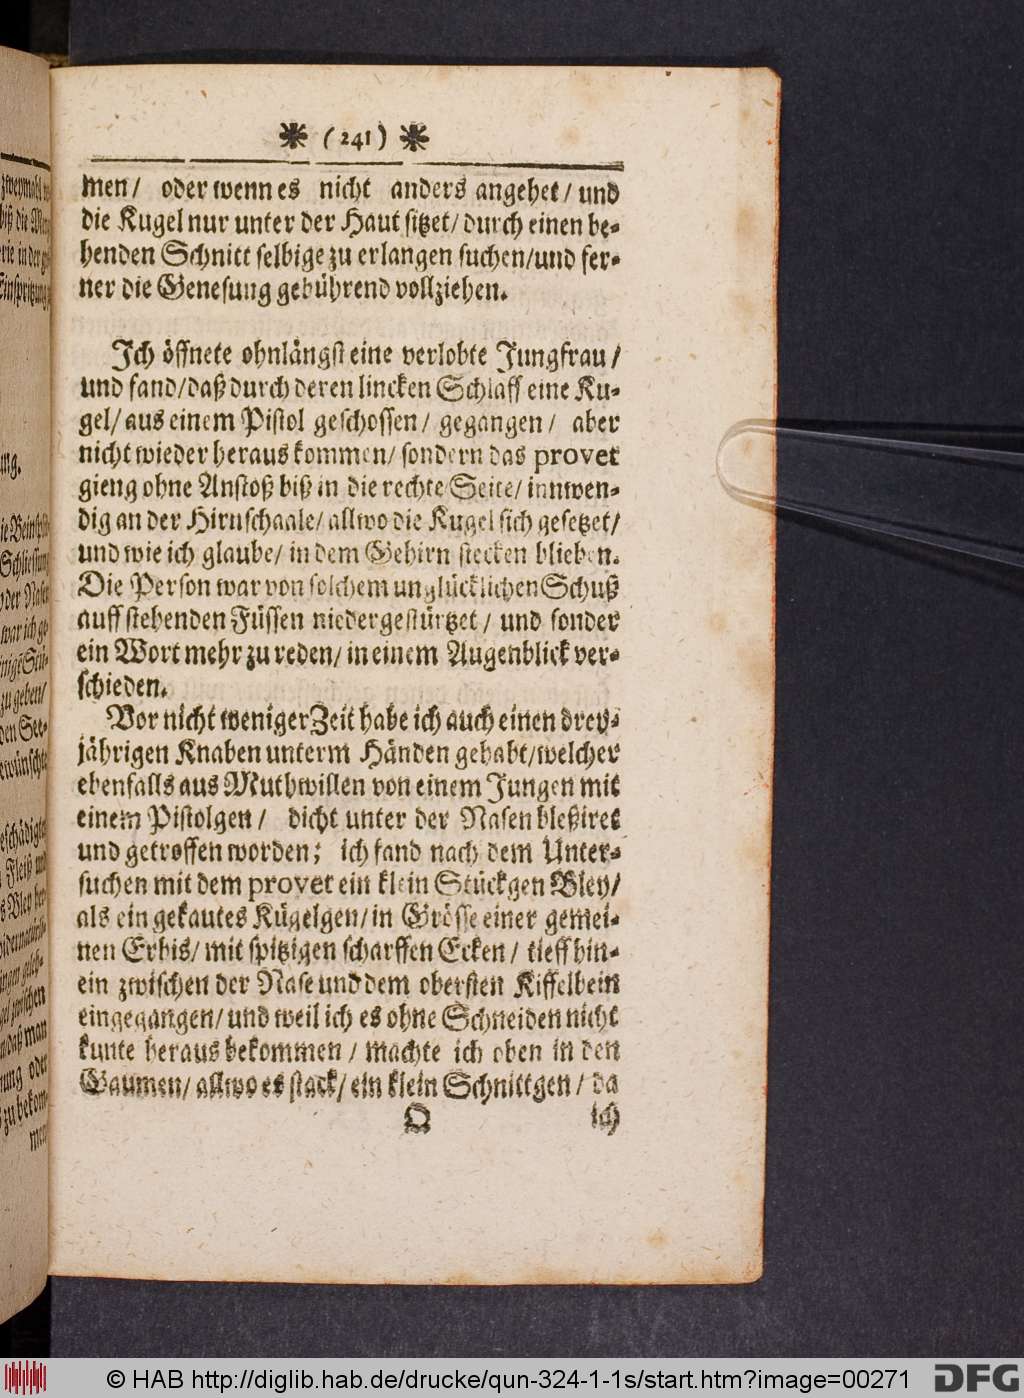 (241)
men/ oder wenn es nicht anders angehet/ und
die Kugel nur unter der Haut sitzet/ durch einen be-
henden Schnitt selbige zu erlangen suchen/und fer-
ner die Genesung gebührend vollziehen.
Ich öffnete ohnlängst eine verlobte Jungfrau/
und fand/daß durch deren lincken Schlaff eine Ku-
gel/ aus einem Pistol geschossen/ gegangen/ aber
nicht wieder heraus kommen/ sondern das provet
gieng ohne Anstoß biß in die rechte Seite/ innwen-
dig an der Hirnschaale/ allwo die Kugel sich gesetzet/
und wie ich glaube/ in dem Gehirn stecken blieben.
Die Person war von solchem unglücklichen Schuß
auff stehenden Füssen niedergestürtzet/ und sonder
ein Wort mehr zu reden/ in einem Augenblick ver-
schieden.
Vor nicht weniger Zeit habe ich auch einen drey-
jährigen Knaben unterm Händen gehabt/welcher
ebenfalls aus Muthwillen von einem Jungen mit
einem Pistolgen/ dicht unter der Nasen bleßiret
und getroffen worden; ich fand nach dem Unter-
suchen mit dem provet ein klein Stückgen Bley/
als ein gekautes Kügelgen/in Grösse einer gemei-
nen Erbis/ mit spitzigen scharffen Ecken/ tieff hin-
ein zwischen der Nase und dem obersten Kiffelbein
eingegangen/ und weil ich es ohne Schneiden nicht
kunte heraus bekommen/ machte ich oben in den
Gaumen/ allwo es stack/ ein klein Schnittgen/ da
Q ich
© HAB http://diglib.hab.de/drucke/qun-324-1-1s/start.htm?image=00271
DFG